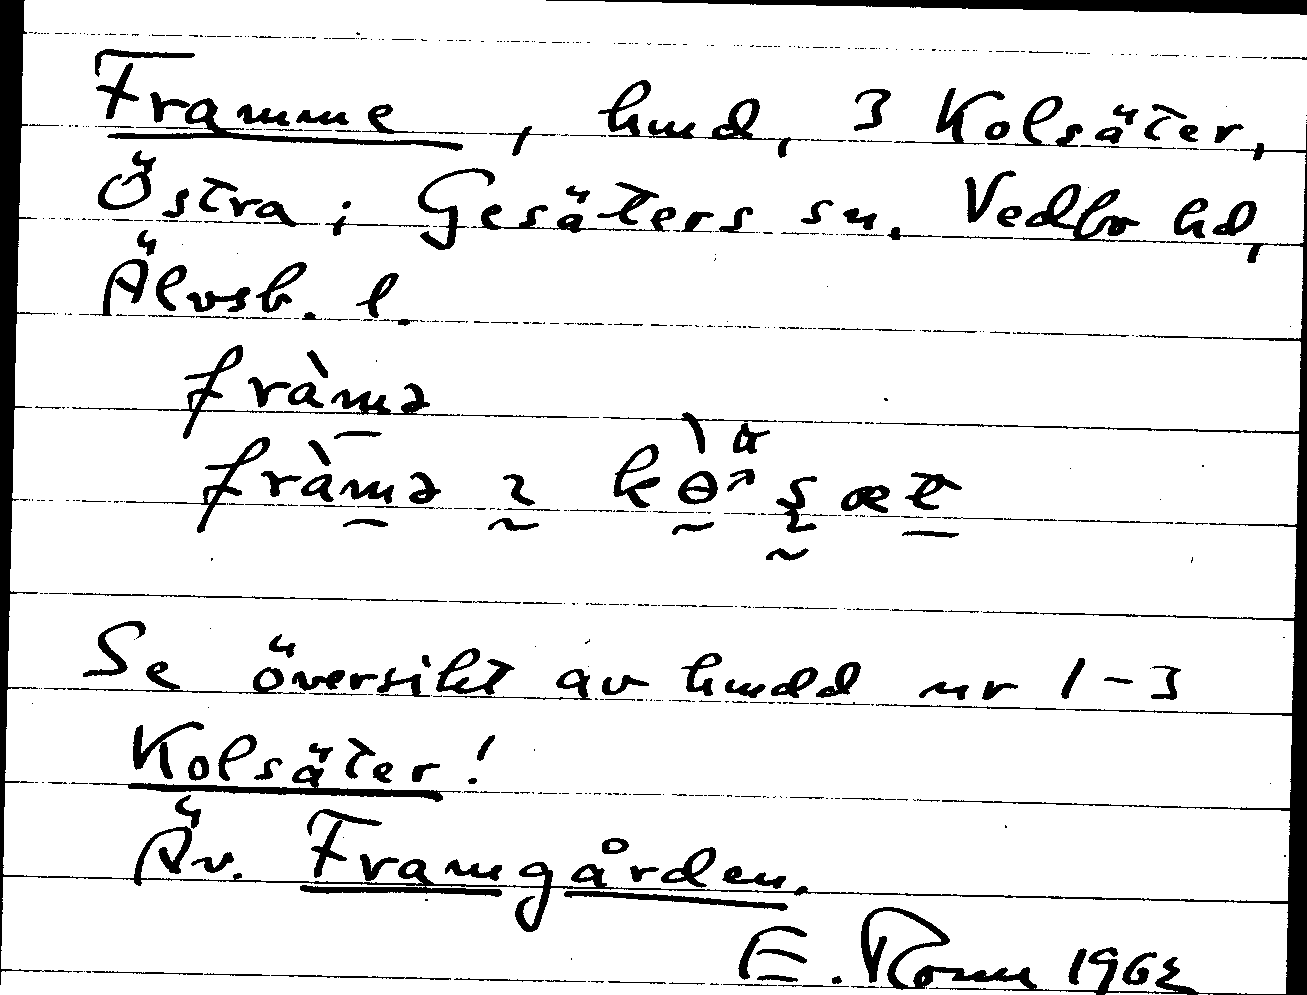 Framme, hmd, 3 Kolsäter,
Östra; Gesäters sn. Vedbo hd,
Älvsb. l.
fràmə
fràmə
Se översikt av hmdd nr 1-3
Kolsäter!
Äv. Framgården.
E. 1962